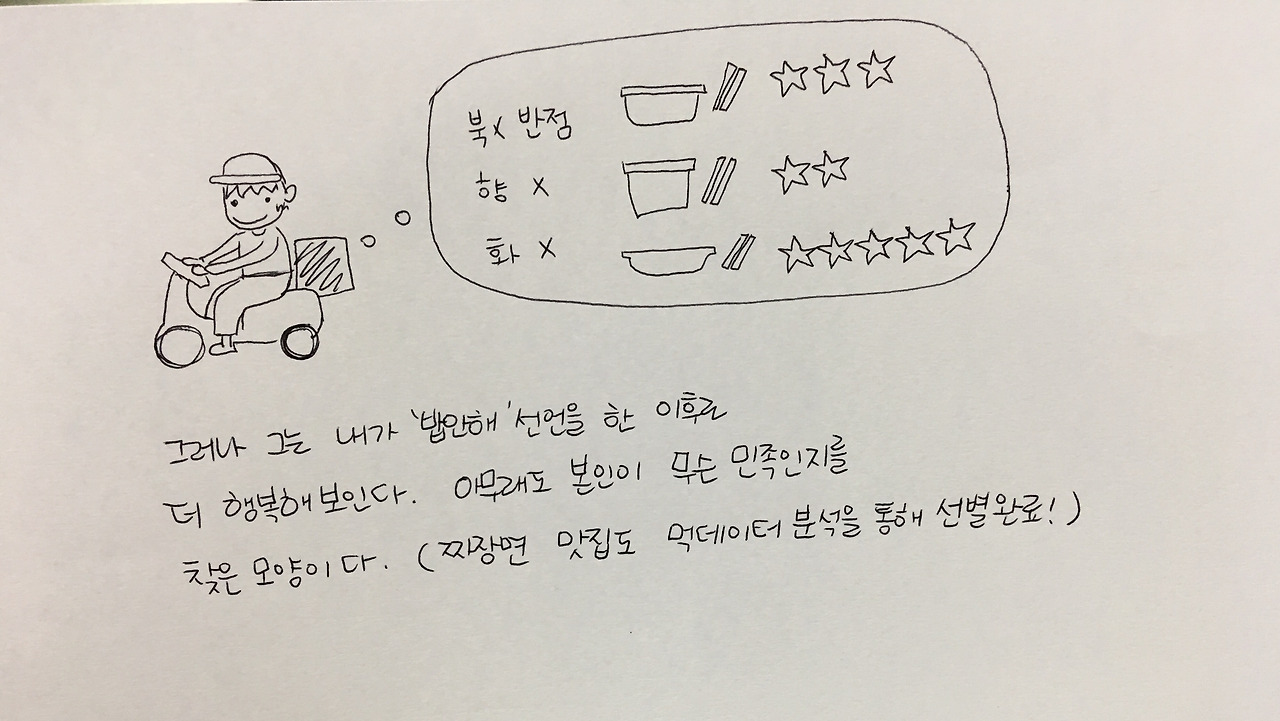 북x 반점
향 x
화 x
그러나 그는 내가 '밥안해' 선언을 한 이후로
더 행복해보인다. 아무래도 본인이 무슨 민족인지를
찾은 모양이다. (찌장면 맛집도 먹데이터 분석을 통해 선별완료!)